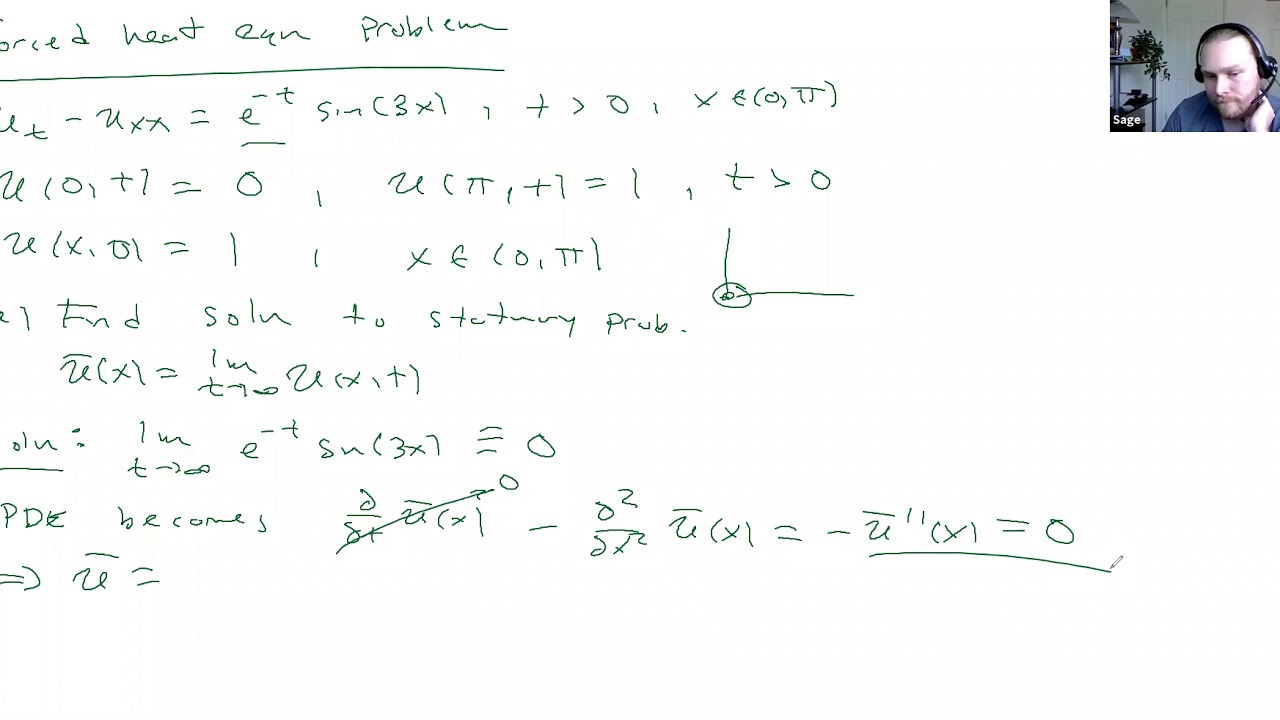 orced heat eqn Problem
u_t - u_xx = e^{-t} sin(3x), t > 0, x ∈ (0, π)
u(0, t) = 0, u(π, t) = 1, t > 0
u(x, 0) = 1, x ∈ (0, π)
) Find soln to statnury prob.
ū(x) = lim_{t→∞} u(x, t)
oln: lim_{t→∞} e^{-t} sin(3x) ≡ 0
PDE becomes ∂/∂t ū(x) 0 - ∂²/∂x² ū(x) = -ū''(x) = 0
⇒ ū =
Sage